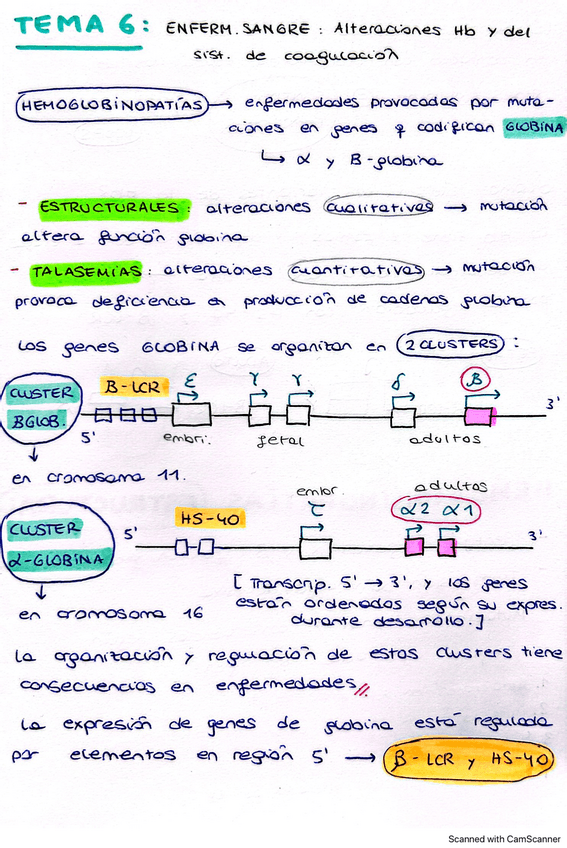 TEMA 6: ENFERM. SANGRE: Alteraciones Hb y del
sist. de coagulación
HEMOGLOBINOPATÍAS → enfermedades provocadas por muta-
ciones en genes q codifican GLOBINA
↳ α y B-globina
- ESTRUCTURALES: alteraciones cualitativas → mutación
altera función globina
- TALASEMIAS: alteraciones cuantitativas → mutación
provoca deficiencia en producción de cadenas globina
Los genes GLOBINA se organizan en 2 CLUSTERS:
CLUSTER
BGLOB.
B-LCR ε γ γ δ B
5' 3'
embri. fetal adultos
en cromosoma 11.
CLUSTER
α-GLOBINA
embr adultos
HS-40 α2 α1
5' 3'
[Transcrip. 5' → 3', y los genes
están ordenados según su expres.
durante desarrollo.]
en cromosoma 16
La organización y regulación de estos clusters tiene
consecuencias en enfermedades
La expresión de genes de globina está regulada
por elementos en región 5' → B-LCR y HS-40
Scanned with CamScanner